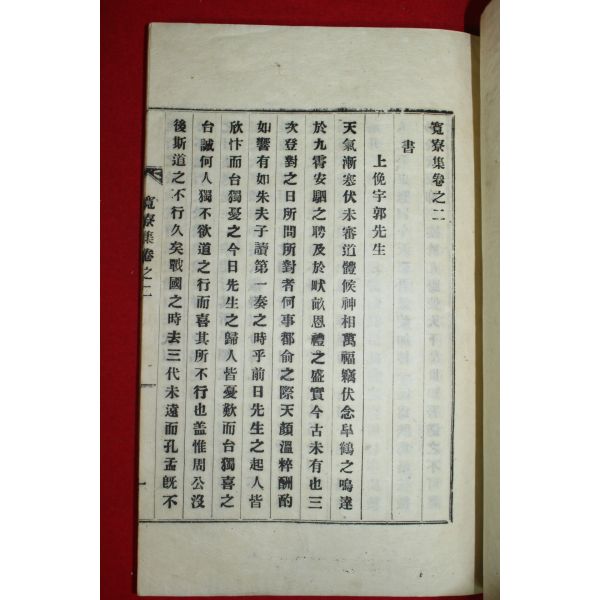 寬寮集卷之二
書
上俛宇郭先生
天氣漸寒伏未審道體候神相萬福竊伏念皐鶴之鳴達
於九霄安駟之聘及於畎畝恩禮之盛實今古未有也三
次登對之日所問所對者何事都俞之際天顏溫粹酬酌
如響有如朱夫子讀第一奏之時乎前日先生之起人皆
欣忭而台獨憂之今日先生之歸人皆憂歎而台獨喜之
台誠何人獨不欲道之行而喜其所不行也盖惟周公沒
後斯道之不行久矣戰國之時去三代未遠而孔孟旣不
寬寮集卷之二
一